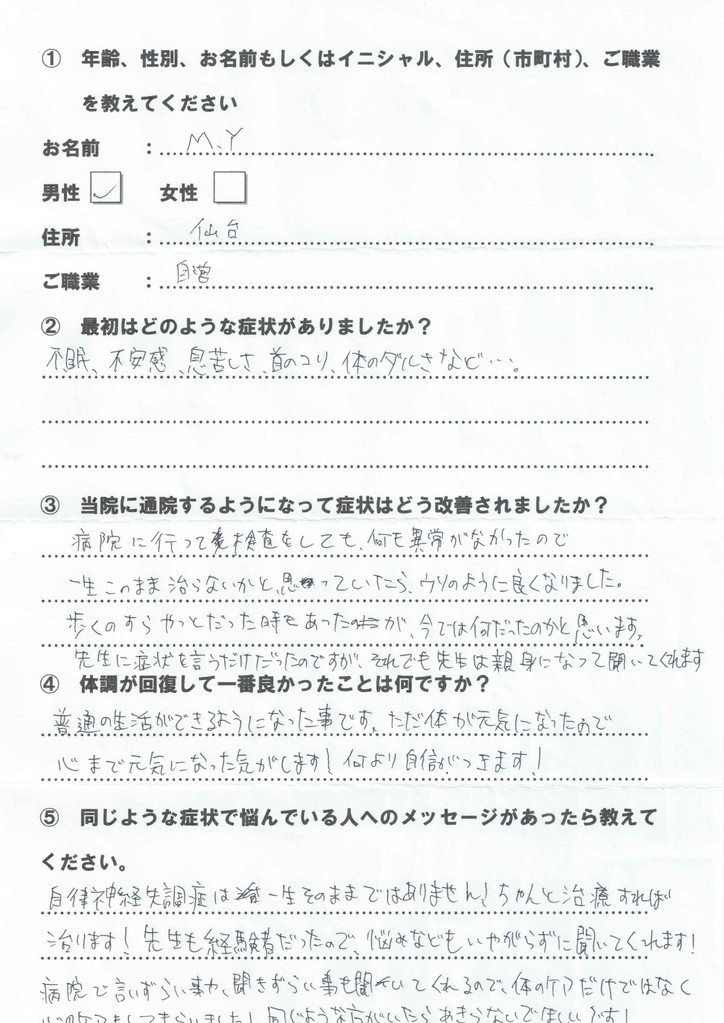 ① 年齢、性別、お名前もしくはイニシャル、住所（市町村）、ご職業
を教えてください
お名前 : M.Y
男性 ✓ 女性
住所 : 仙台
ご職業 : 自営
② 最初はどのような症状がありましたか？
不眠、不安感、息苦しさ、首のコリ、体のダルさなど…。
③ 当院に通院するようになって症状はどう改善されましたか？
病院に行って検査をしても、何も異常がなかったので
一生このまま治らないかと、思っていたら、ウソのように良くなりました。
歩くのすらやっとだった時もあったが、今では何だったのかと思います。
先生に症状を言うだけだったのですが、それでも先生は親身になって聞いてくれます
④ 体調が回復して一番良かったことは何ですか？
普通の生活ができるようになった事です。ただ体が元気になったので
心まで元気になった気がします！何より自信がつきます！
⑤ 同じような症状で悩んでいる人へのメッセージがあったら教えて
ください。
自律神経失調症は一生そのままではありません！ちゃんと治療すれば
治ります！先生も経験者だったので、悩みなどもいやがらずに聞いてくれます！
病院で言いずらい事や、聞きずらい事も聞いてくれるので、体のケアだけではなく
心のケアもしてもらいました！同じような方がいたらあきらないでほしいです！